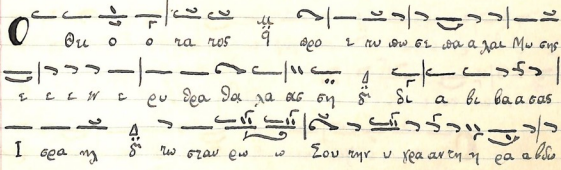 Ο Θει ο ο τα τος q̈ προ ε τυ πω σε πα α λαι Μω σης
ε ε ε εν ε ρυ θρα θα λα ασ ση δι δι α βι βα α σας
Ι σρα ηλ δι τω σταυ ρω ω Σου την υ γρα αν τη η ρα α βδω